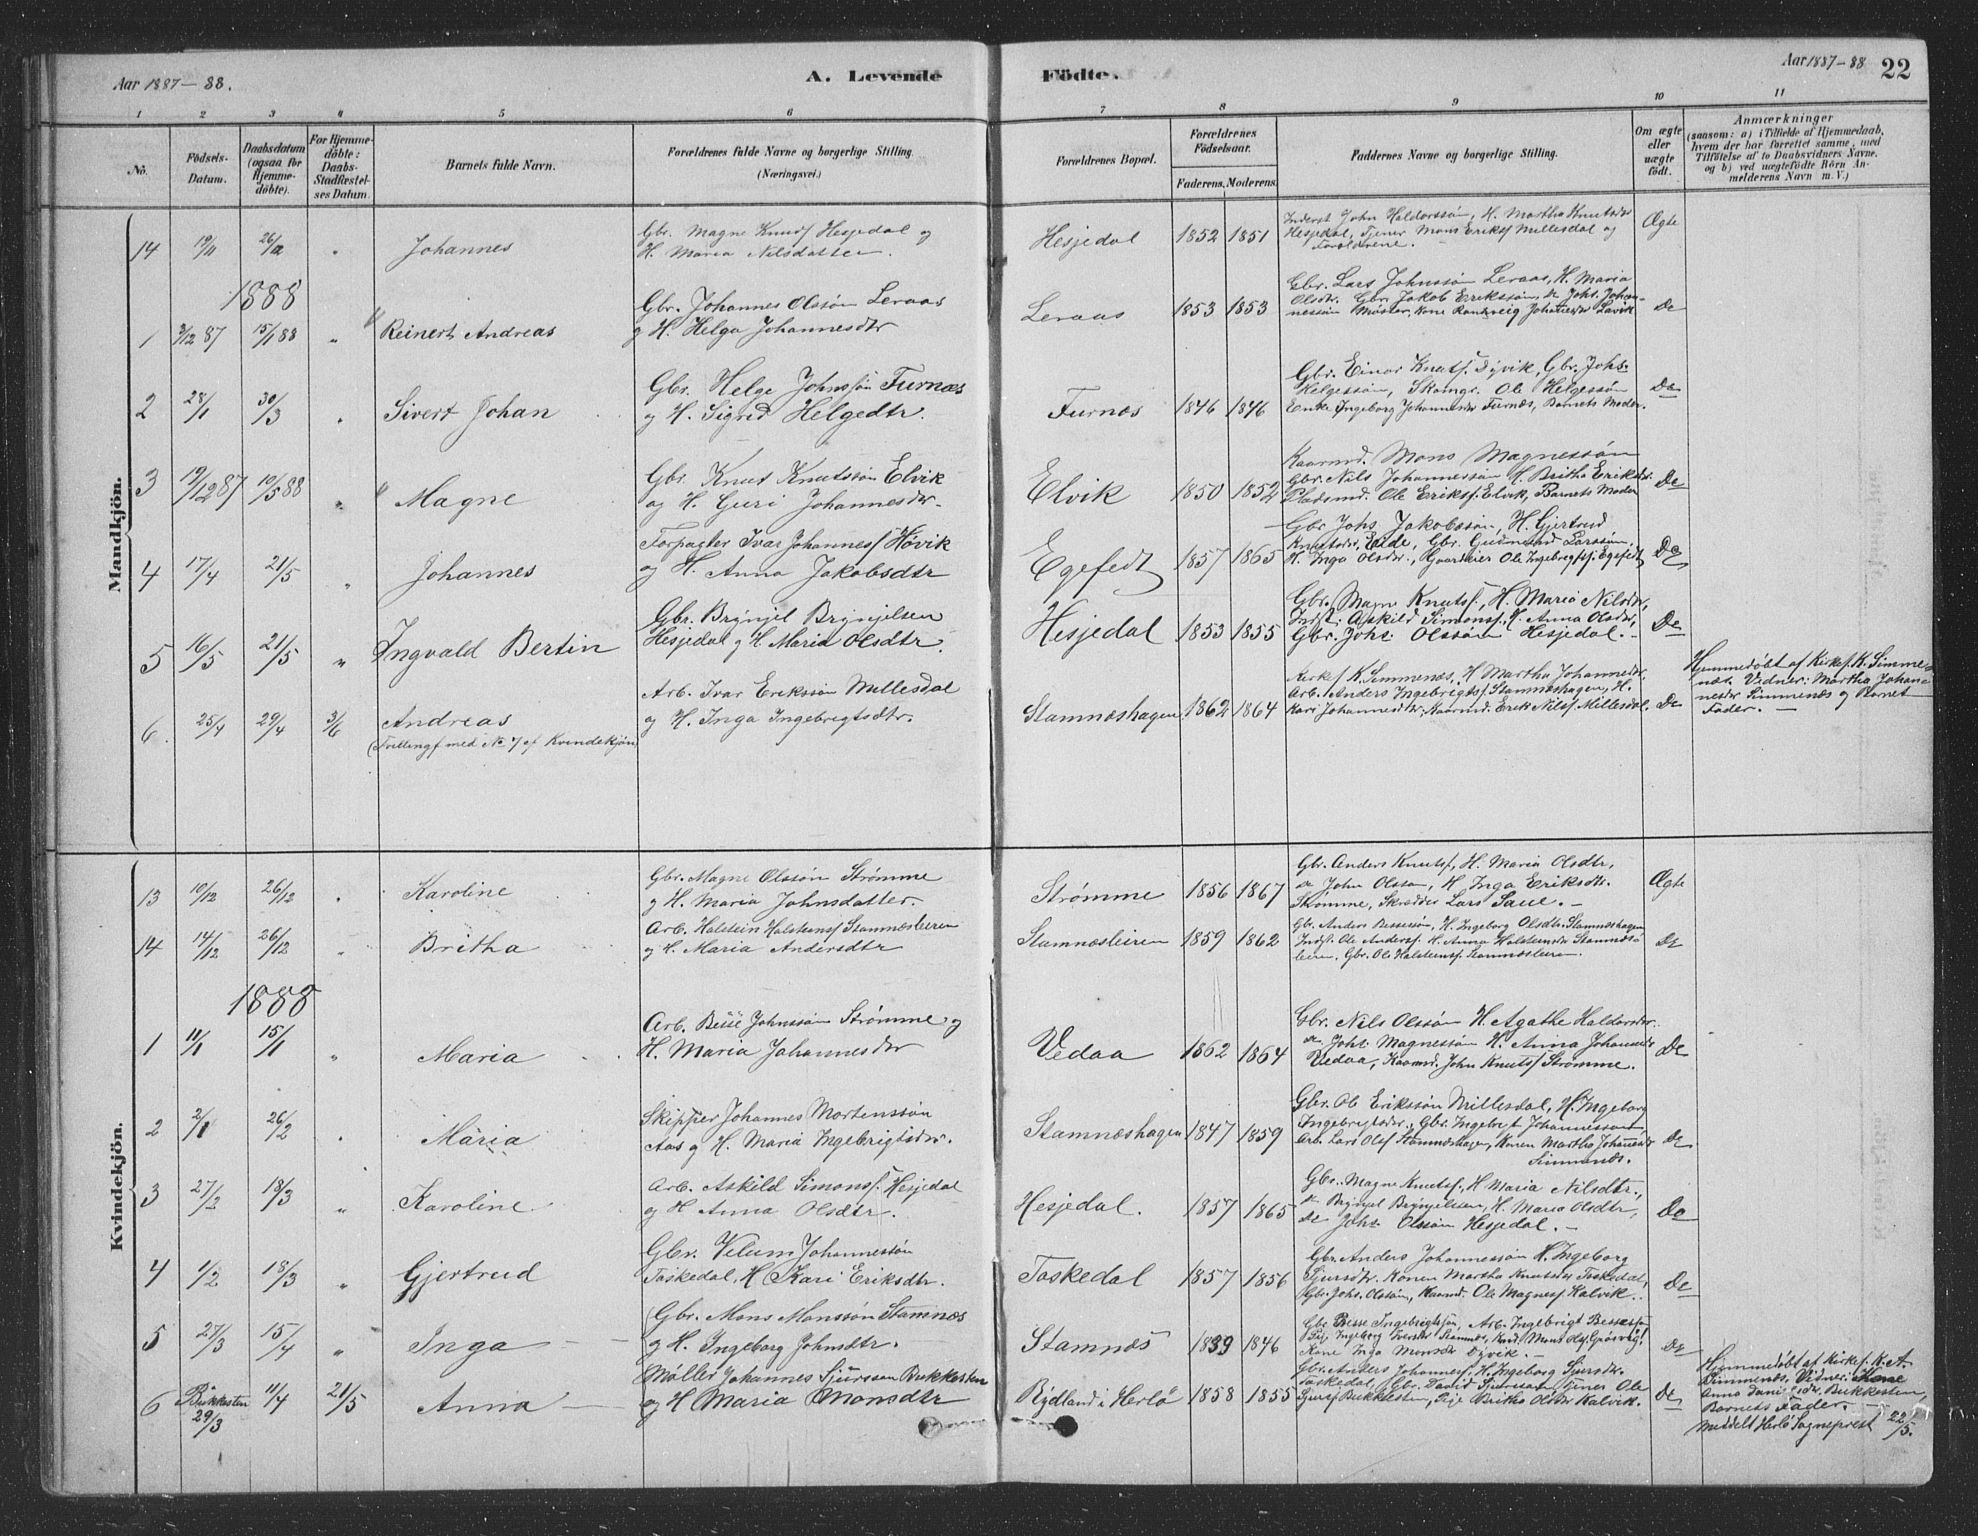 Aar 1887-88.
A. Levende
Födte.
Aar 1887-88
22
1 2 3 4 5 6 7 8 9 10 11
No.
Födsels-
Datum.
Daabsdatum
(ogsaa for
Hjemme-
döbte).
For Hjemme-
döbte:
Daabs-
Stadfæstel-
ses Datum.
Barnets fulde Navn.
Forældrenes fulde Navne og borgerlige Stilling.
(Næringsvei.)
Forældrenes Bopæl.
Forældrenes
Födselsaar.
Faderens. Moderens.
Faddernes Navne og borgerlige Stilling.
Om ægte
eller
uægte
födt.
Anmærkninger
(saasom: a) i Tilfælde af Hjemmedaab,
hvem der har forrettet samme, med
Tilföielse af to Daabsvidners Navne,
og b) ved uægtefödte Börn An-
melderens Navn m. V.)
Mandkjön.
14 19/11 26/12 " Johannes
Gbr. Magne Knuds. Hesjedal og
H. Maria Nilsdatter.
Hesjedal 1852 1851
Inderst John Haldorssøn, H. Martha Knutsdr
Hesjedal, Tjener Mons Eriks. Millesdal og
Forældrene.
Ægte
1888
1 3/12 87 15/1 88 " Reinert Andreas
Gbr. Johannes Olssøn Leraas
og H. Helga Johannesdtr
Leraas 1853 1853
Gbr. Lars Johnssøn Leraas, H. Maria
Olsdtr. Gbr. Jakob Erikssøn, do Johs. Johan-
nessøn Møster, Kone Randveig Johannesdr Lavik
De
2 28/1 30/3 " Sivert Johan
Gbr. Helge Johnssøn Furnæs
og H. Sigrid Helgedtr.
Furnæs 1846 1846
Gbr. Einar Knuts. Dyvik, Gbr. Johs.
Helgessøn, Skomgr. Ole Helgessøn
Enke Ingeborg Johannesdr Furnæs, Barnets Moder.
De
3 19/12 87 10/5 88 " Magne
Gbr. Knut Knutssøn Elvik
og H. Guri Johannesdtr.
Elvik 1850 1852
Kaarmd. Mons Magnessøn
Gbr. Nils Johannessøn H. Britha Eriksdr.
Pladsmd. Ole Eriks. Elvik, Barnets Moder
De
4 17/4 21/5 " Johannes
Forpagter Ivar Johannes. Høvik
og H. Anna Jakobsdtr
Egefedt 1857 1865
Gbr Johs Jakobssøn, H. Gjertrud
Knutsdr, Eide, Gbr. Gudmund Larssøn,
H. Inga Olsdtr., Ole Ingebrigts. Egefedt
De
5 16/5 21/5 " Ingvald Bertin
Gbr. Brynjel Brynjelsen
Hesjedal og H. Maria Olsdtr.
Hesjedal 1853 1855
Gbr. Magne Knuts., H. Maria Nilsdr,
Indst. Askild Simons., H. Anna Olsdr,
Gbr. Johs. Olssøn Hesjedal.
De
6 25/4 29/4 3/6 Andreas
(Tvilling med No 7 af Kvindekjøn)
Arb. Ivar Erikssøn Millesdal
og H. Inga Ingebrigtsdtr.
Stamnæshagen 1862 1864
Kirkes. K. Simmenæs, H Martha Johannesdr
Arb. Anders Ingebrigts. Stamnæshagen, H.
Kari Johannesdtr, Kaarmd. Erik Nils. Millesdal.
De
Hjemmedøbt af Kirkes. K. Simme-
næs. Vidner: Martha Johan-
nesdr Simmenæs og Barnets
Fader.
Kvindekjön.
13 10/12 26/12 " Karoline
Gbr. Magne Olssøn Strømme
og H. Maria Johnsdatter.
Strømme 1856 1867
Gbr. Anders Knuts., H. Maria Olsdtr,
do John Olsson, H Inga Eriksdtr.
Strømme, Skrædder Lars Saue.
Ægte
14 14/12 26/12 " Britha
Arb. Halstein Halsteins. Stamnæsleiren
og H. Maria Andersdtr
Stamnæsleiren 1859 1862
Gbr. Anders Bessesøn, H. Ingeborg Olsdtr. Stamnæshagen
Indst. Ole Anders. H. Anna Halsteinsdr Stamnæs-
leiren, Gbr. Ole Halsteins. Stamnæsleiren.
De
1888
1 11/1 15/1 " Maria
Arb. Besse Johnssøn Strømme og
H. Maria Johannesdtr
Vedaa 1862 1864
Gbr. Nils Olssøn H. Agathe Haldorsdr.
do Johs. Magnessøn H. Anna Johannesdr
Vedaa, Kaarmd. John Knuts. Strømme.
De
2 2/1 26/2 " Maria
Skipper Johannes Mortenssøn
Aas og H. Maria Ingebrigtsdtr.
Stamnæshagen 1847 1859
Gbr. Ole Erikssøn Millesdal, H. Ingeborg
Ingebrigtsdr., Gbr. Ingebrigt Johannessøn
Arb. Lars Ols. Stamnæshagen, Konen Martha Johannesdr
Simmenæs.
De
3 27/2 18/3 " Karoline
Arb. Askild Simons. Hesjedal
og H Anna Olsdtr.
Hesjedal. 1857 1865
Gbr. Magne Knuts., H Maria Nilsdtr.,
do Brynjel Brynjelsen, H. Maria Olsdtr,
do Johs. Olssøn Hesjedal.
Do
4 1/2 18/3 " Gjertrud
Gbr. Vilum Johannessøn
Toskedal, H Kari Eriksdtr.
Toskedal 1857 1856
Gbr. Anders Johannessøn H. Ingeborg
Sjursdr. Konen Martha Knutsdr Toskedal,
Gbr. Johs. Olssøn, Kaarmd. Ole Magnes. Kalvik.
De
5 27/3 15/4 " Inga
Gbr. Mons Monssøn Stamnæs
og H. Ingeborg Johnsdtr.
Stamnæs 1839 1846
Gbr Besse Ingebrigtssøn, Arb. Ingebrigt Bessessøn
Pige Ingeborg Iversdr Stamnæs,
Kone Inga Monsdr Dyvik.
De
6 Bukkesten 29/3 11/4 21/5 Anna
Møller Johannes Sjurssøn Bukkesten
og H Maria Monsdtr
Rydland i Herlø 1858 1855
Gbr. Anders Johannes. H. Ingeborg Sjursdr.
Toskedal, Gbr. David Sjurssøn, Tjener Ole
Sjurs. Bukkesten, Pige Britha Olsdr Kalvik.
De
Hjemmedøbt af Kirkes. K. A.
Simmenæs. Vidner: Kone
Anna Bukkesten,
Barnets Fader.
Meddelt Herlø Sognepræst 22/5.